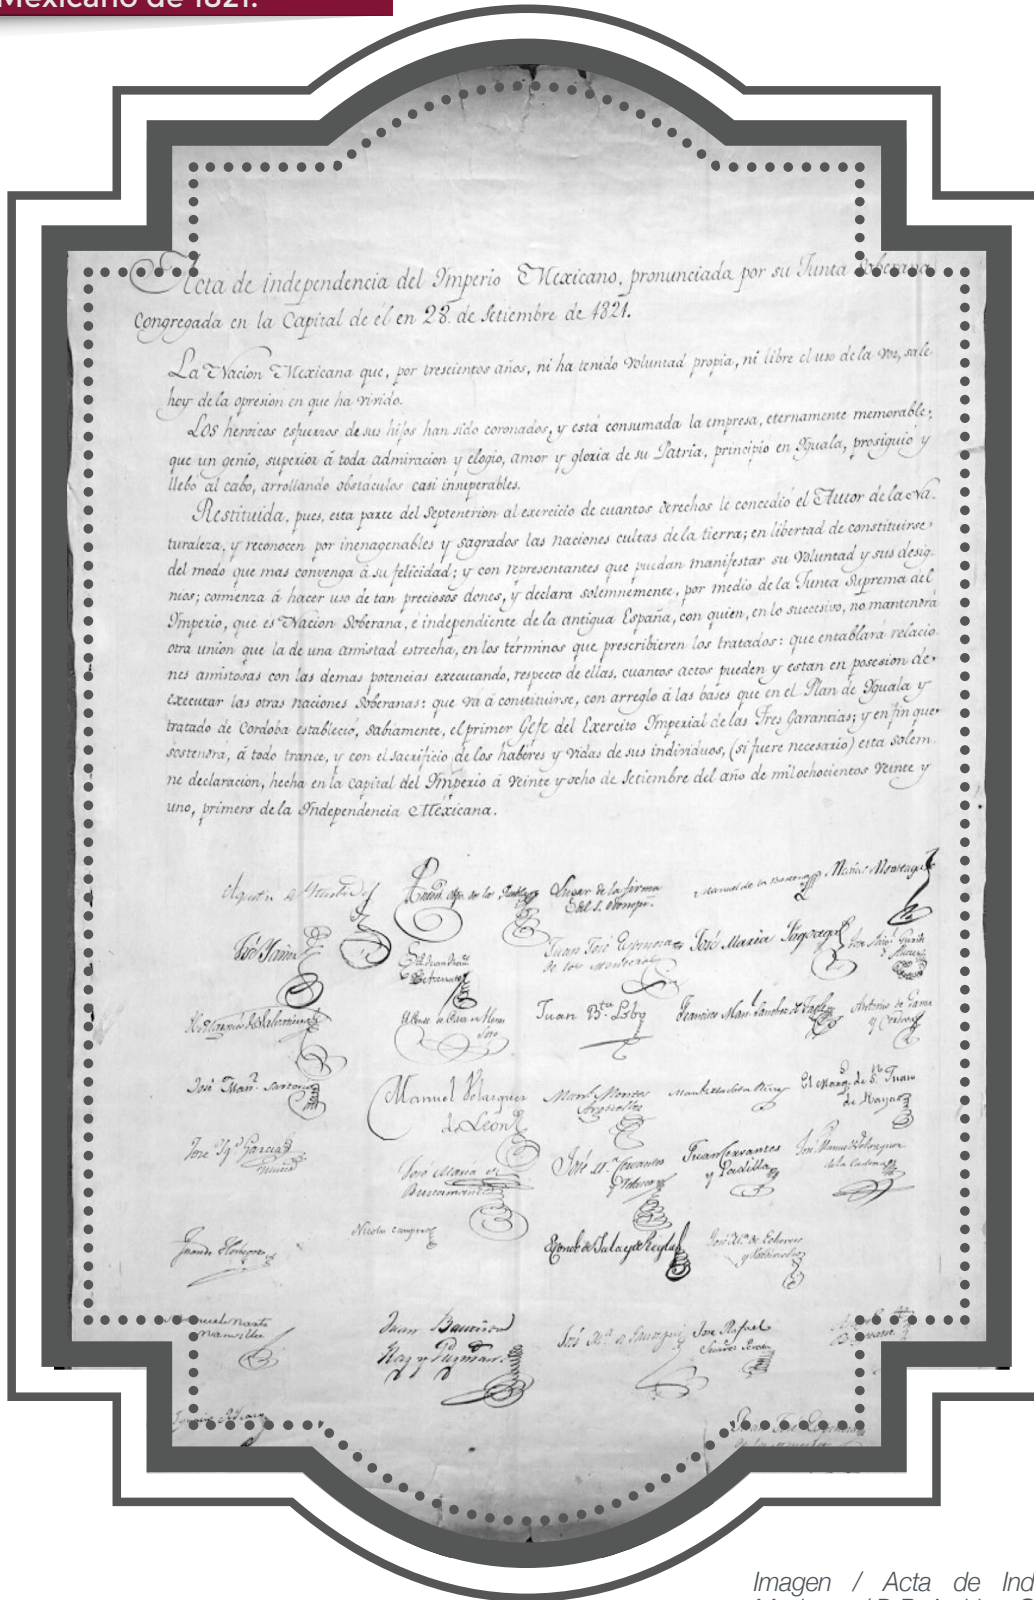 Mexicano de 1821.
Acta de independencia del Ymperio Mexicano, pronunciada por su Junta Soberana
congregada en la Capital de él en 28. de Setiembre de 1821.
La Nacion Mexicana que, por trescientos años, ni ha tenido voluntad propia, ni libre el uso de la voz, sale
hoy de la opresion en que ha vivido.
Los heroicos esfuerzos de sus hijos han sido coronados, y está consumada la empresa, eternamente memorable,
que un genio, superior á toda admiracion y elogio, amor y gloria de su Patria, principió en Yguala, prosiguió y
llebó al cabo, arrollando obstáculos casi insuperables.
Restituida, pues, esta parte del Septentrion al exercicio de cuantos derechos le concedió el Autor de la Na-
turaleza, y reconocen por inenagenables y sagrados las naciones cultas de la tierra; en libertad de constituirse
del modo que mas convenga á su felicidad; y con representantes que puedan manifestar su voluntad y sus desig-
nios; comienza á hacer uso de tan preciosos dones, y declara solemnemente, por medio de la Junta Suprema del
Ymperio, que es Nacion Soberana, é independiente de la antigua España, con quien, en lo succesivo, no mantendrá
otra union que la de una amistad estrecha, en los términos que prescribieren los tratados: que entablará relacio-
nes amistosas con las demas potencias executando, respecto de ellas, cuantos actos pueden y estan en posesion de
executar las otras naciones Soberanas: que vá á constituirse, con arreglo á las bases que en el Plan de Yguala y
tratado de Cordoba estableció, sabiamente, el primer Gefe del Exercito Ymperial de las Tres Garantias; y en fin que
sostendrá, á todo trance, y con el sacrificio de los haberes y vidas de sus individuos, (si fuere necesario) esta solem-
ne declaracion, hecha en la Capital del Ymperio á veinte y ocho de Setiembre del año de mil ochocientos veinte y
uno, primero de la Independencia Méxicana.
Lugar de la firma
del S. Odonojú.
Juan José Espinosa
de los Monteros
José Maria Fagoaga
Juan B.
José Man. Sartorio
Manuel Velazquez
de León
Man. Montes
Arguelles
El Marq. de S. Juan
de Rayas
José Maria de
Bustamante
José M. Cervantes
y Velasco
Juan Cervantes
y Padilla
José Manuel Velazquez
de la Cadena
Nicolas Campero
Juan Bautista
Raz y Guzman.
José Rafael
Suarez Pereda
Imagen / Acta de Ind